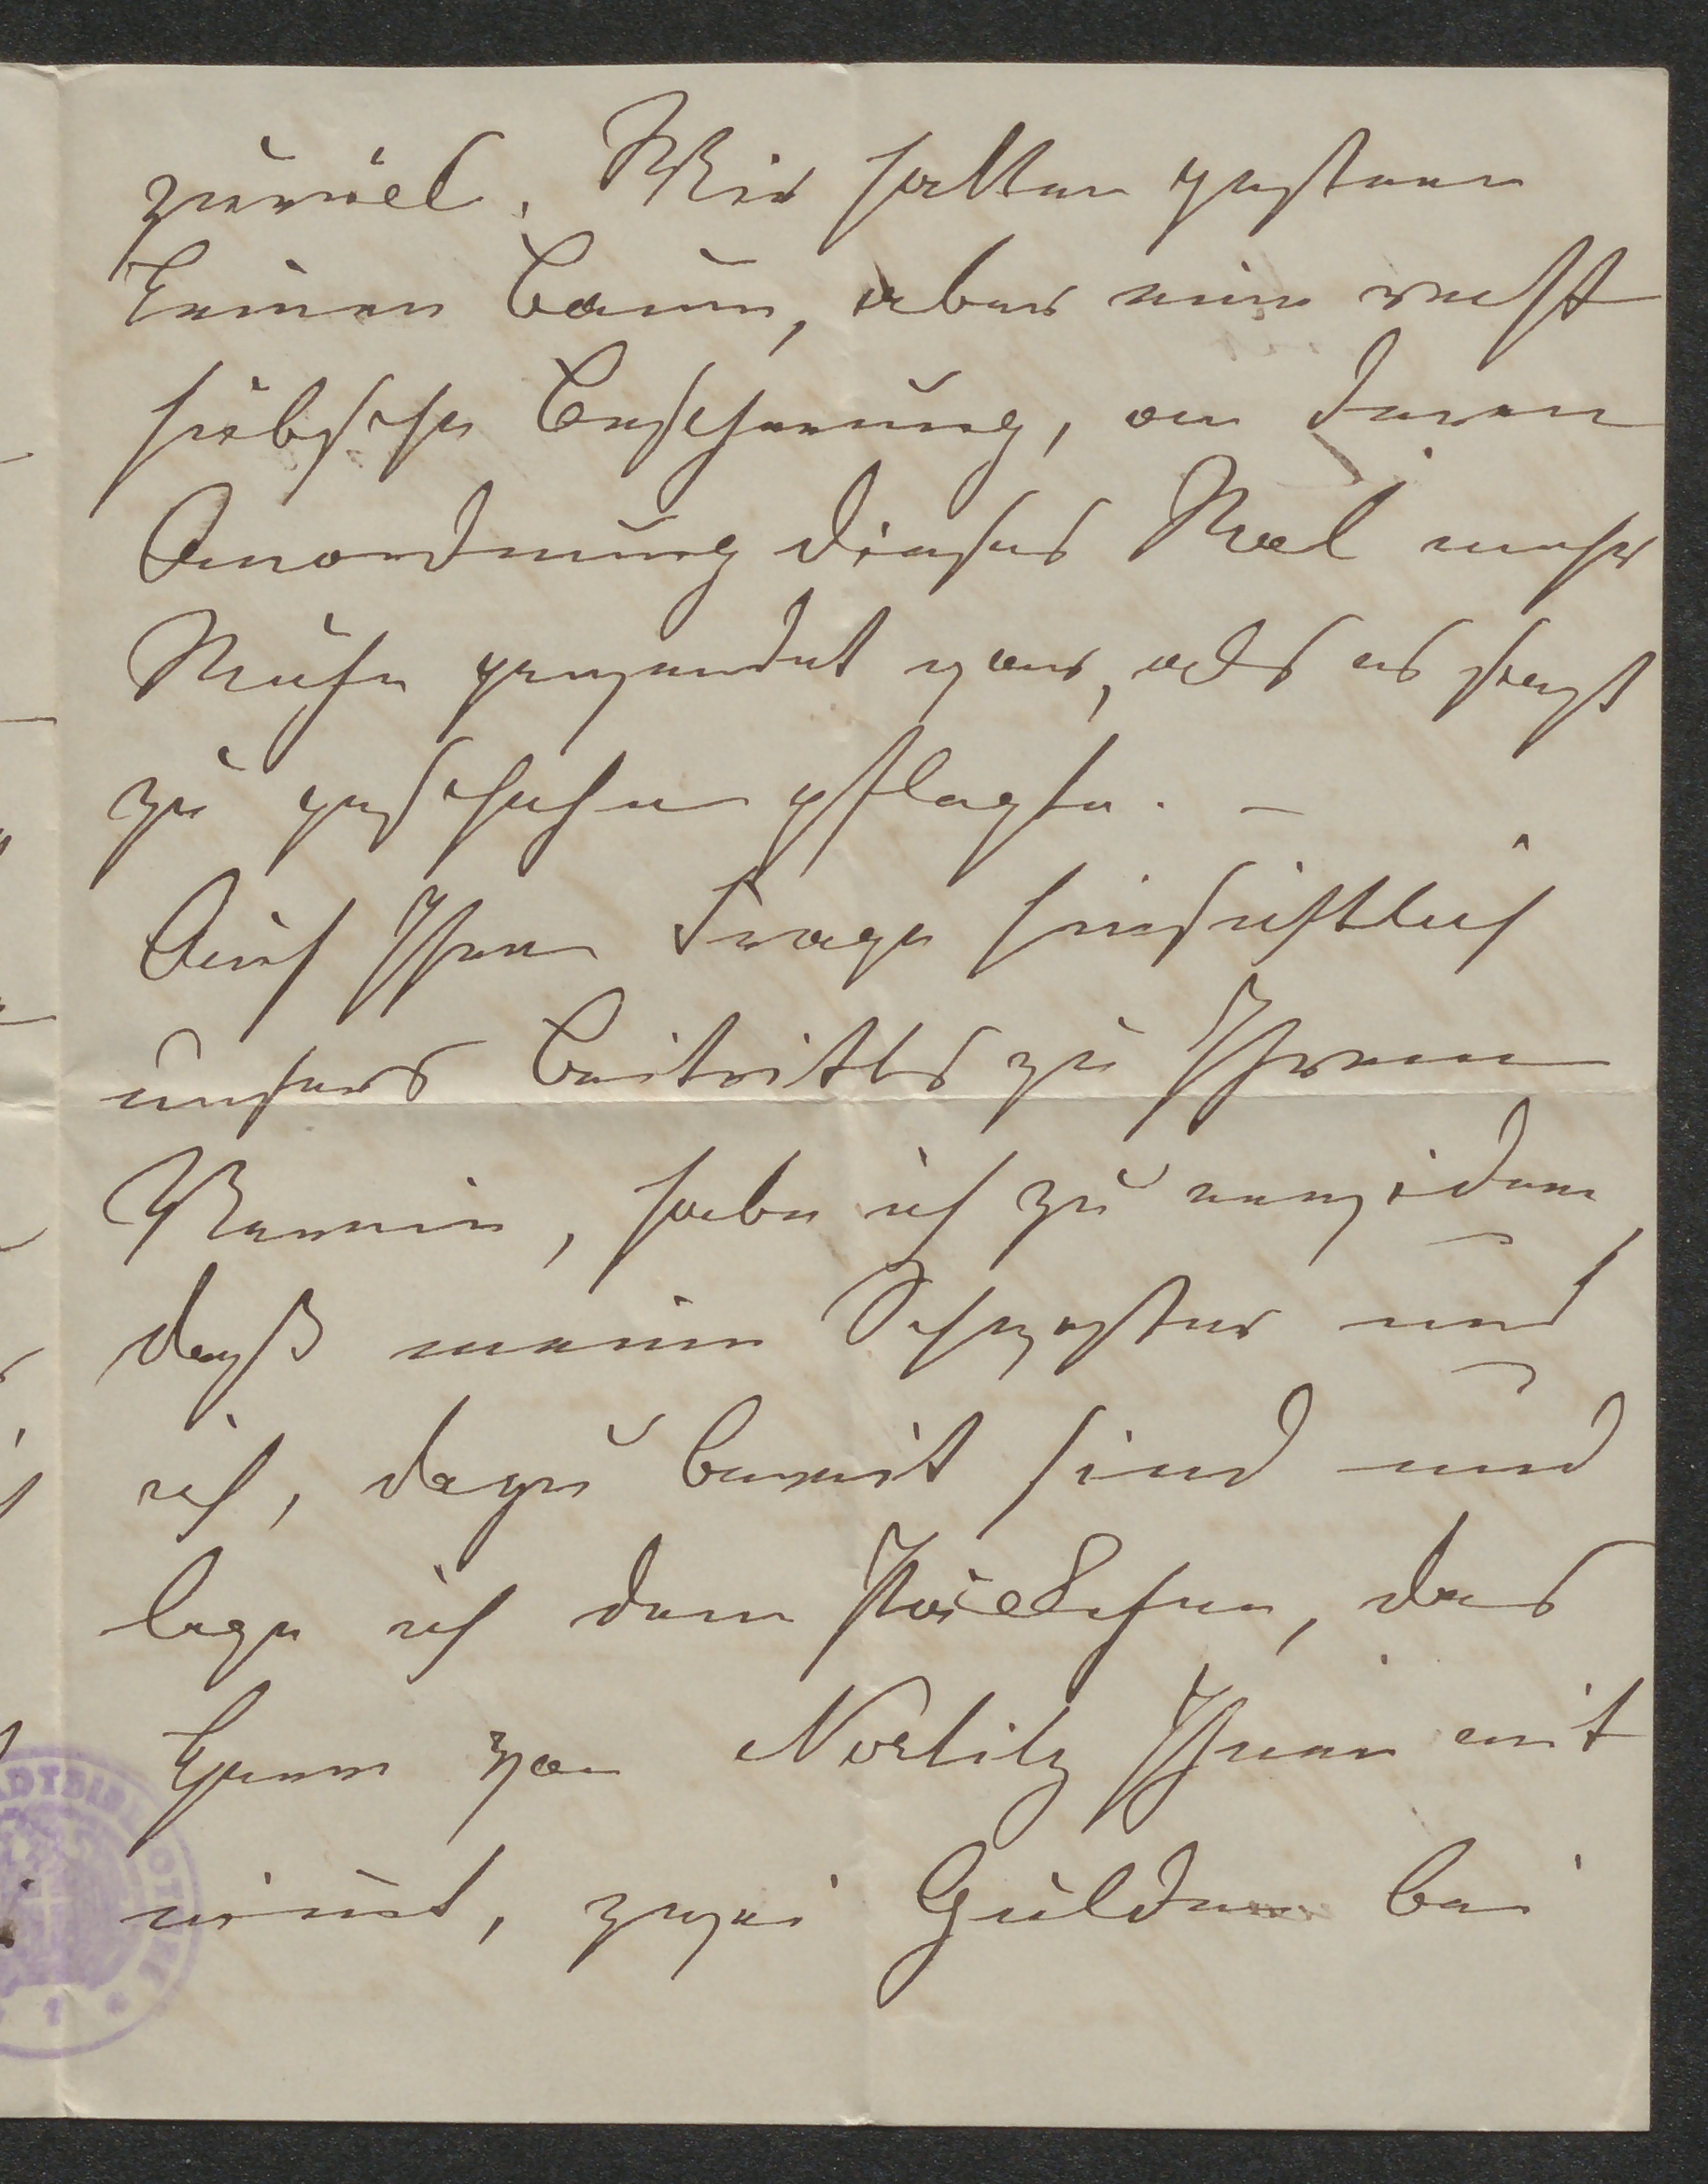 zuviel. Wir hatten gestern
keinen Baum, aber eine recht
hübsche Bescherung, an deren
Anordnung dieses Mal mehr
Mühe gewendet war, als es sonst
zu geschehen pflegte. –
Auf Ihre Frage hinsichtlich
unsers Beitritts zu Ihrem
Verein, habe ich zu erwidern
daß meine Schwester und
ich, dazu bereit sind und
lege ich dem Päckchen, das
Herr von Nostitz Ihnen mit
nimt, zwei Gulden bei